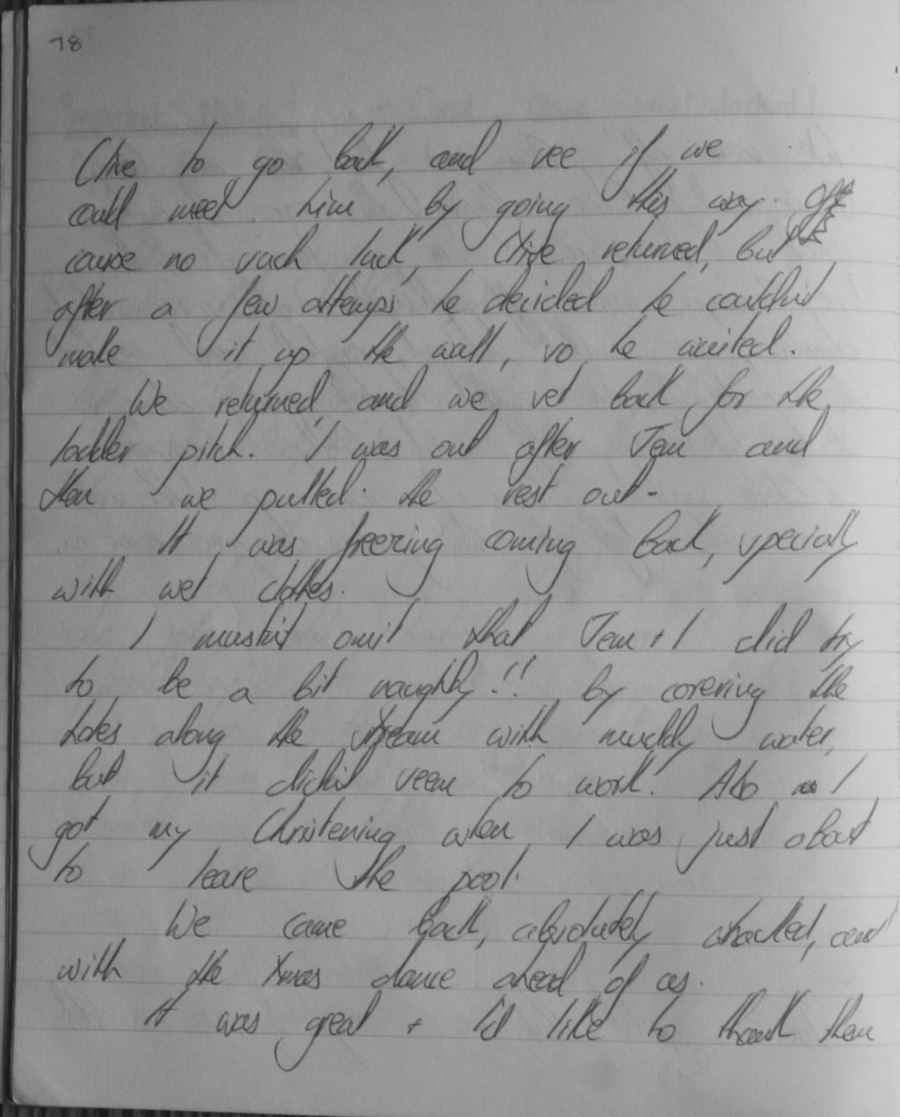 78
Clive to go back, and see if we
could meet him by going this way. Of
cause no such luck, Clive returned, but
after a few attemps he decided he couldn't
make it up the wall, so he waited.
We returned, and we set back for the
ladder pitch. I was out after Jem and
then we pulled the rest out.
It was freezing coming back, specially
with wet clothes.
I mustn't omit that Jem + I did try
to be a bit naughty!! by covering the
holes along the stream with muddy water,
but it didn't seem to work. Also I
got my Christening when I was just about
to leave the pool.
We came back, absolutely whacked, and
with the Xmas dance ahead of us.
It was great + I'd like to thank them